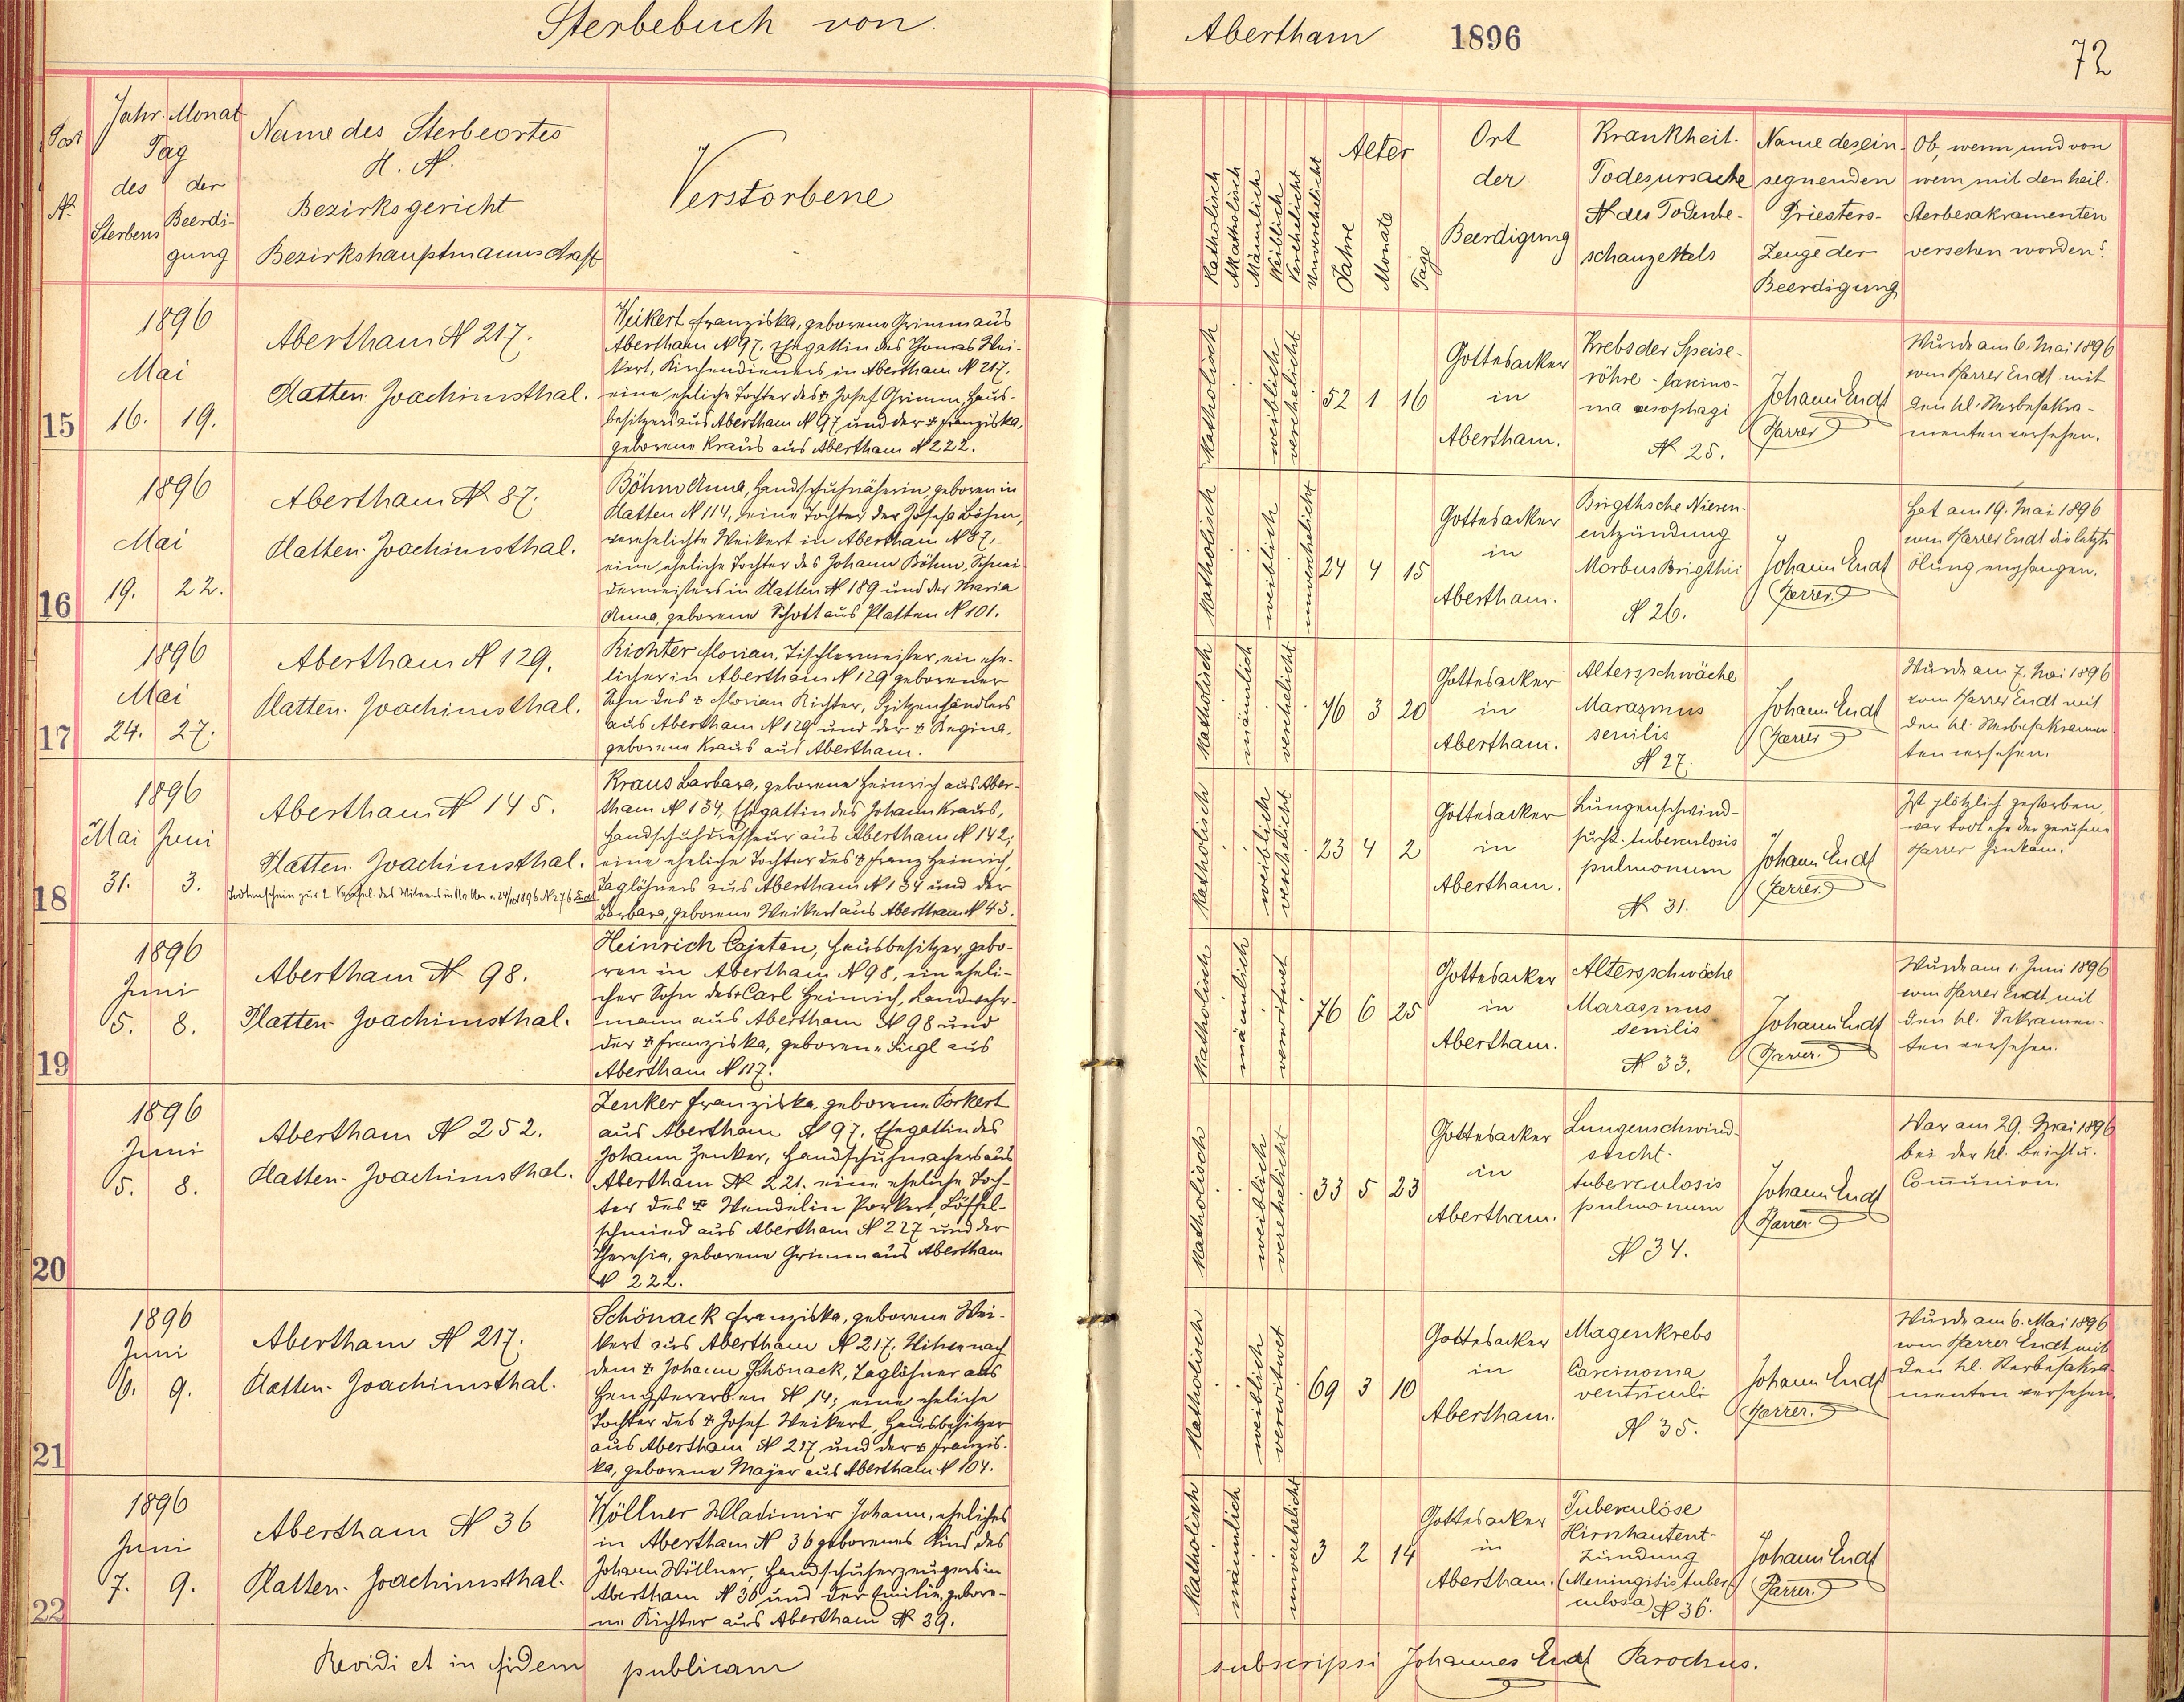 Sterbebuch von
Abertham 1896
72
Post
N.
Jahr. Monat
Tag
des der
Sterbens Beerdi-
gung
Name des Sterbeortes
H. N.
Bezirksgericht
Bezirkshauptmannschaft
Verstorbene
Katholisch
Akatholisch
Männlich
Weiblich
Verehelicht
Unverehelicht
Alter
Jahre
Monate
Tage
Ort
der
Beerdigung
Krankheit.
Todesursache
N des Todenbe-
schauzettels
Name des ein-
segnenden
Priesters-
Zeuge der
Beerdigung
Ob, wenn und von
wem mit den heil.
Sterbesakramenten
versehen worden?
15
1896
Mai
16. 19.
Abertham N 217.
Platten. Joachimsthal.
Weikert Franziska, geborene Grimm aus
Abertham N 97. Ehegattin des Thomas Wei-
kert, Kirchendieners in Abertham N 217.
eine eheliche Tochter des ✝ Josef Grimm, Haus-
besitzers aus Abertham N 97 und der ✝ Franziska,
geborene Kraus aus Abertham N 222.
Katholisch
weiblich
verehelicht
52 1 16
Gottesacker
in
Abertham.
Krebs der Speise-
röhre - Carcino-
ma oesophagi
N 25.
Johann Endt
Pfarrer
Wurde am 6. Mai 1896
vom Pfarrer Endt mit
den hl. Sterbesakra-
menten versehen.
16
1896
Mai
19. 22.
Abertham N 87.
Platten. Joachimsthal.
Böhm Anna, Handschuhnäherin, geboren in
Platten N 114, eine Tochter der Josefa Böhm,
verehelichte Weikert in Abertham N 87,
eine eheliche Tochter des Johann Böhm, Schnei-
dermeisters in Platten N 189 und der Maria
Anna, geborene Schott aus Platten N 101.
Katholisch
weiblich
unverehelicht
24 4 15
Gottesacker
in
Abertham.
Brigthsche Nieren-
entzündung
Morbus Brigthii
N 26.
Johann Endt
Pfarrer.
Hat am 19. Mai 1896
vom Pfarrer Endt die letzte
Ölung empfangen.
17
1896
Mai
24. 27.
Abertham N 129.
Platten. Joachimsthal.
Richter Florian, Tischlermeister, ein ehe-
licher in Abertham N 129 geborener
Sohn des ✝ Florian Richter, Spitzenhändlers
aus Abertham N 129 und der ✝ Regina,
geborene Kraus aus Abertham.
Katholisch
mänlich
verehelicht
76 3 20
Gottesacker
in
Abertham.
Altersschwäche
Marazmus
senilis
N 27.
Johann Endt
Pfarrer
Wurde am 7. Mai 1896
vom Pfarrer Endt mit
den hl. Sterbesakramen-
ten versehen.
18
1896
Mai Juni
31. 3.
Abertham N 145.
Platten. Joachimsthal.
Todtenschein zur 2.
Kraus Barbara, geborene Heinrich aus Aber-
tham N 134, Ehegattin des Johann Kraus,
Handschuhdresseur aus Abertham N 142;
eine eheliche Tochter des ✝ Franz Heinrich,
Taglöhners aus Abertham N 134 und der
Barbara, geborene Weikert aus Abertham N 43.
Katholisch
weiblich
verehelicht
23 4 2
Gottesacker
in
Abertham.
Lungenschwind-
sucht. tuberculosis
pulmonum
N 31.
Johann Endt
Pfarrer.
Ist plötzlich gestorben,
war todt ehe der gerufene
Pfarrer hinkam.
19
1896
Juni
5. 8.
Abertham N 98.
Platten. Joachimsthal.
Heinrich Cajetan, Hausbesitzer, gebo-
ren in Abertham N 98, ein eheli-
cher Sohn des ✝ Carl Heinrich, Landwehr-
mann aus Abertham N 98 und
der ✝ Franziska, geborene Siegl aus
Abertham N 117.
Katholisch
mänlich
verwitwet
76 6 25
Gottesacker
in
Abertham.
Altersschwäche
Marasmus
senilis
N 33.
Johann Endt
Pfarrer.
Wurde am 1. Juni 1896
vom Pfarrer Endt mit
den hl. Sakramen-
ten versehen.
20
1896
Juni
5. 8.
Abertham N 252.
Platten. Joachimsthal.
Zenker Franziska, geborene Porkert
aus Abertham N 97. Ehegattin des
Johann Zenker, Handschuhmachers aus
Abertham N 221. eine eheliche Toch-
ter des ✝ Wendelin Porkert, Löffel-
schmied aus Abertham N 227 und der
Theresia, geborene Grimm aus Abertham
N 222.
Katholisch
weiblich
verehelicht
33 5 23
Gottesacker
in
Abertham.
Lungenschwind-
sucht.
tuberculosis
pulmonum
N 34.
Johann Endt
Pfarrer
War am 29. Mai 1896
bei der hl. Beicht u.
Com̄union.
21
1896
Juni
6. 9.
Abertham N 217.
Platten. Joachimsthal.
Schönack Franziska, geborene Wei-
kert aus Abertham N 217. Witwe nach
dem ✝ Johann Schönack, Taglöhner aus
Hengstererben N 14; eine eheliche
Tochter des ✝ Josef Weikert, Hausbesitzer
aus Abertham N 217 und der ✝ Franzis-
ka, geborene Majer aus Abertham N 104.
Katholisch
weiblich
verwitwet
69 3 10
Gottesacker
in
Abertham.
Magenkrebs
Carcinoma
ventriculi
N 35.
Johann Endt
Pfarrer.
Wurde am 6. Mai 1896
vom Pfarrer Endt mit
den hl. Sterbesakra-
menten versehen.
22
1896
Juni
7. 9.
Abertham N 36
Platten. Joachimsthal.
Wöllner Wladimir Johann, eheliches
in Abertham N 36 geborenes Kind des
Johann Wöllner, Handschuherzeugers in
Abertham N 36 und der Emilie, gebore-
ne Richter aus Abertham N 39.
Katholisch
mänlich
unverehelicht
3 2 14
Gottesacker
in
Abertham.
Tuberculöse
Hirnhautent-
zündung
(Meningitis tuber-
culosa) N 36.
Johann Endt
Pfarrer.
Revidi et in fidem publicam
subscripsi Johannes Endt Parochus.